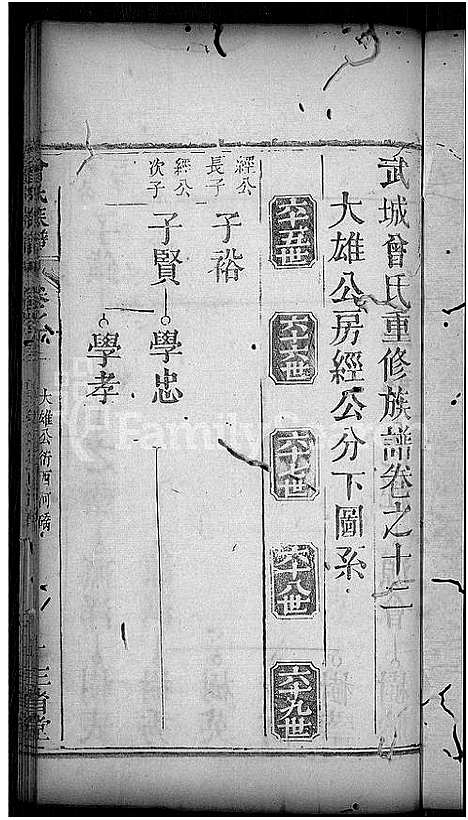 武城曾氏重修族譜卷之十二
大雄公房經公分下圖系
六十五世 六十六世 六十七世 六十八世 六十九世
經公長子 子裕
經公次子 子賢 學忠
學孝
大雄公衛西河
三省堂
FamilySearch